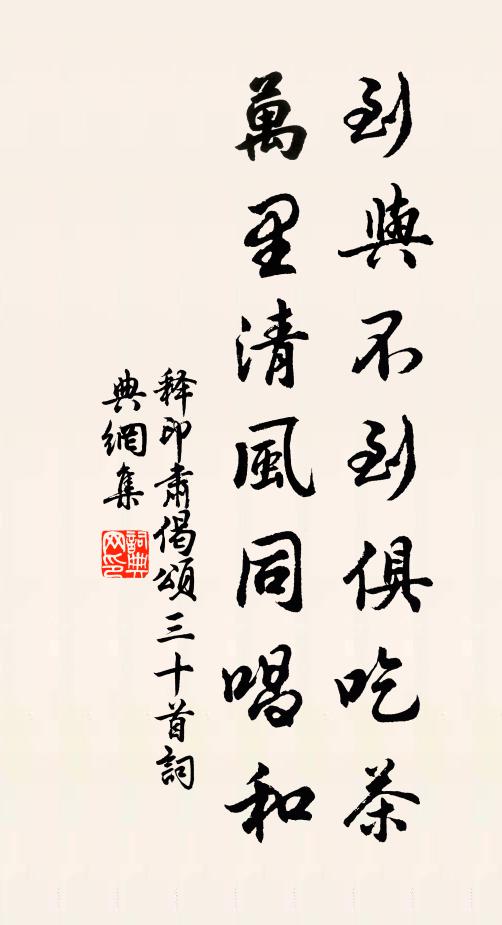 到與不到俱吃茶
萬里清風同唱和
释印肅偈頌三十首詞
典網集
詞典网印